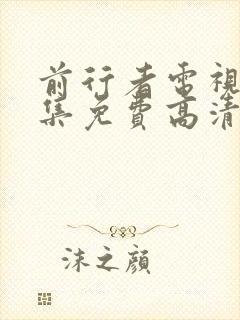 前行者電視
集免費高清
沫之顔